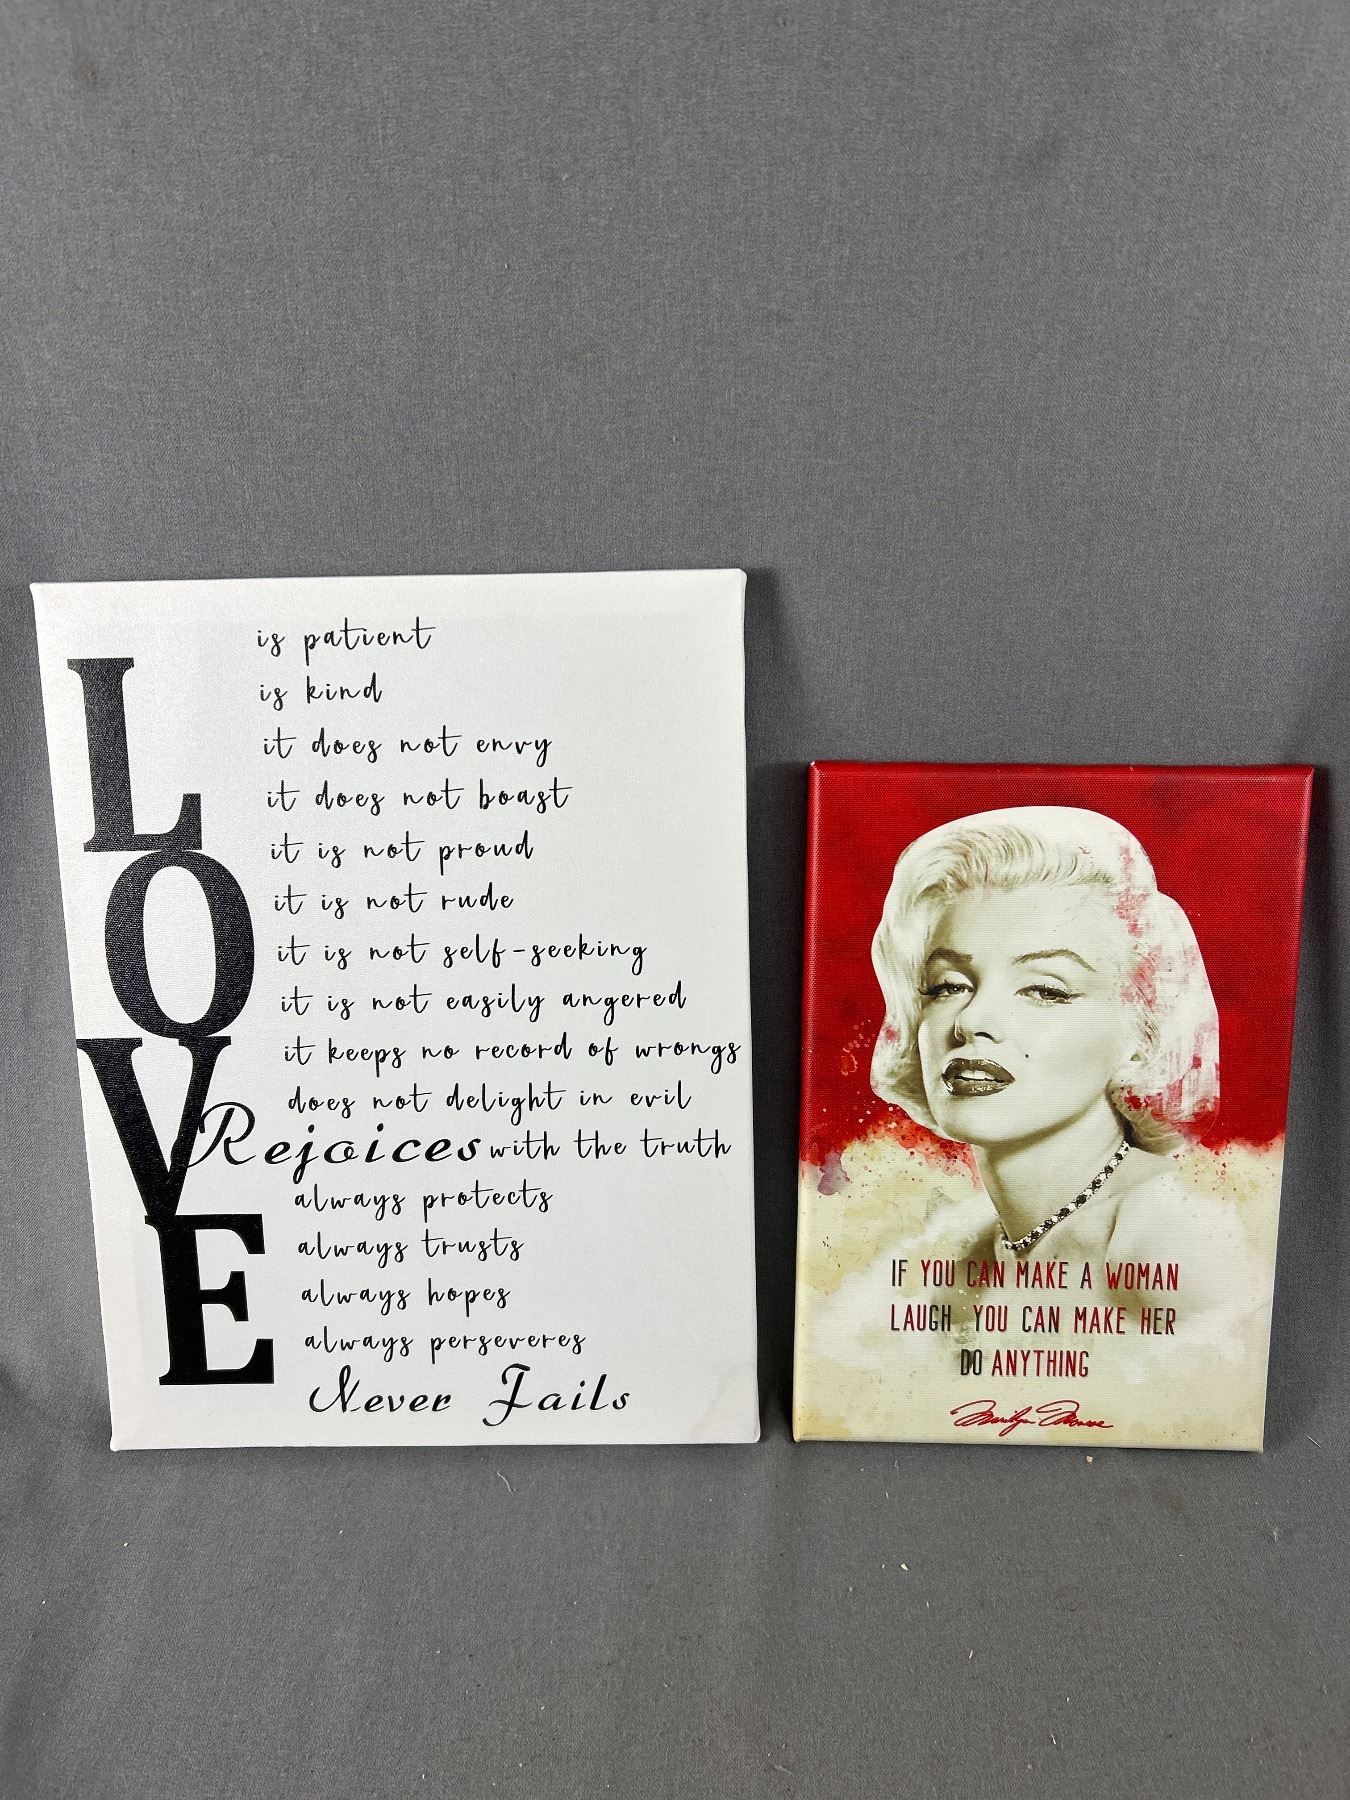 LOVE
is patient
is kind
it does not envy
it does not boast
it is not proud
it is not rude
it is not self-seeking
it is not easily angered
it keeps no record of wrongs
does not delight in evil
Rejoices with the truth
always protects
always trusts
always hopes
always perseveres
Never Fails
IF YOU CAN MAKE A WOMAN
LAUGH YOU CAN MAKE HER
DO ANYTHING
Marilyn Monroe